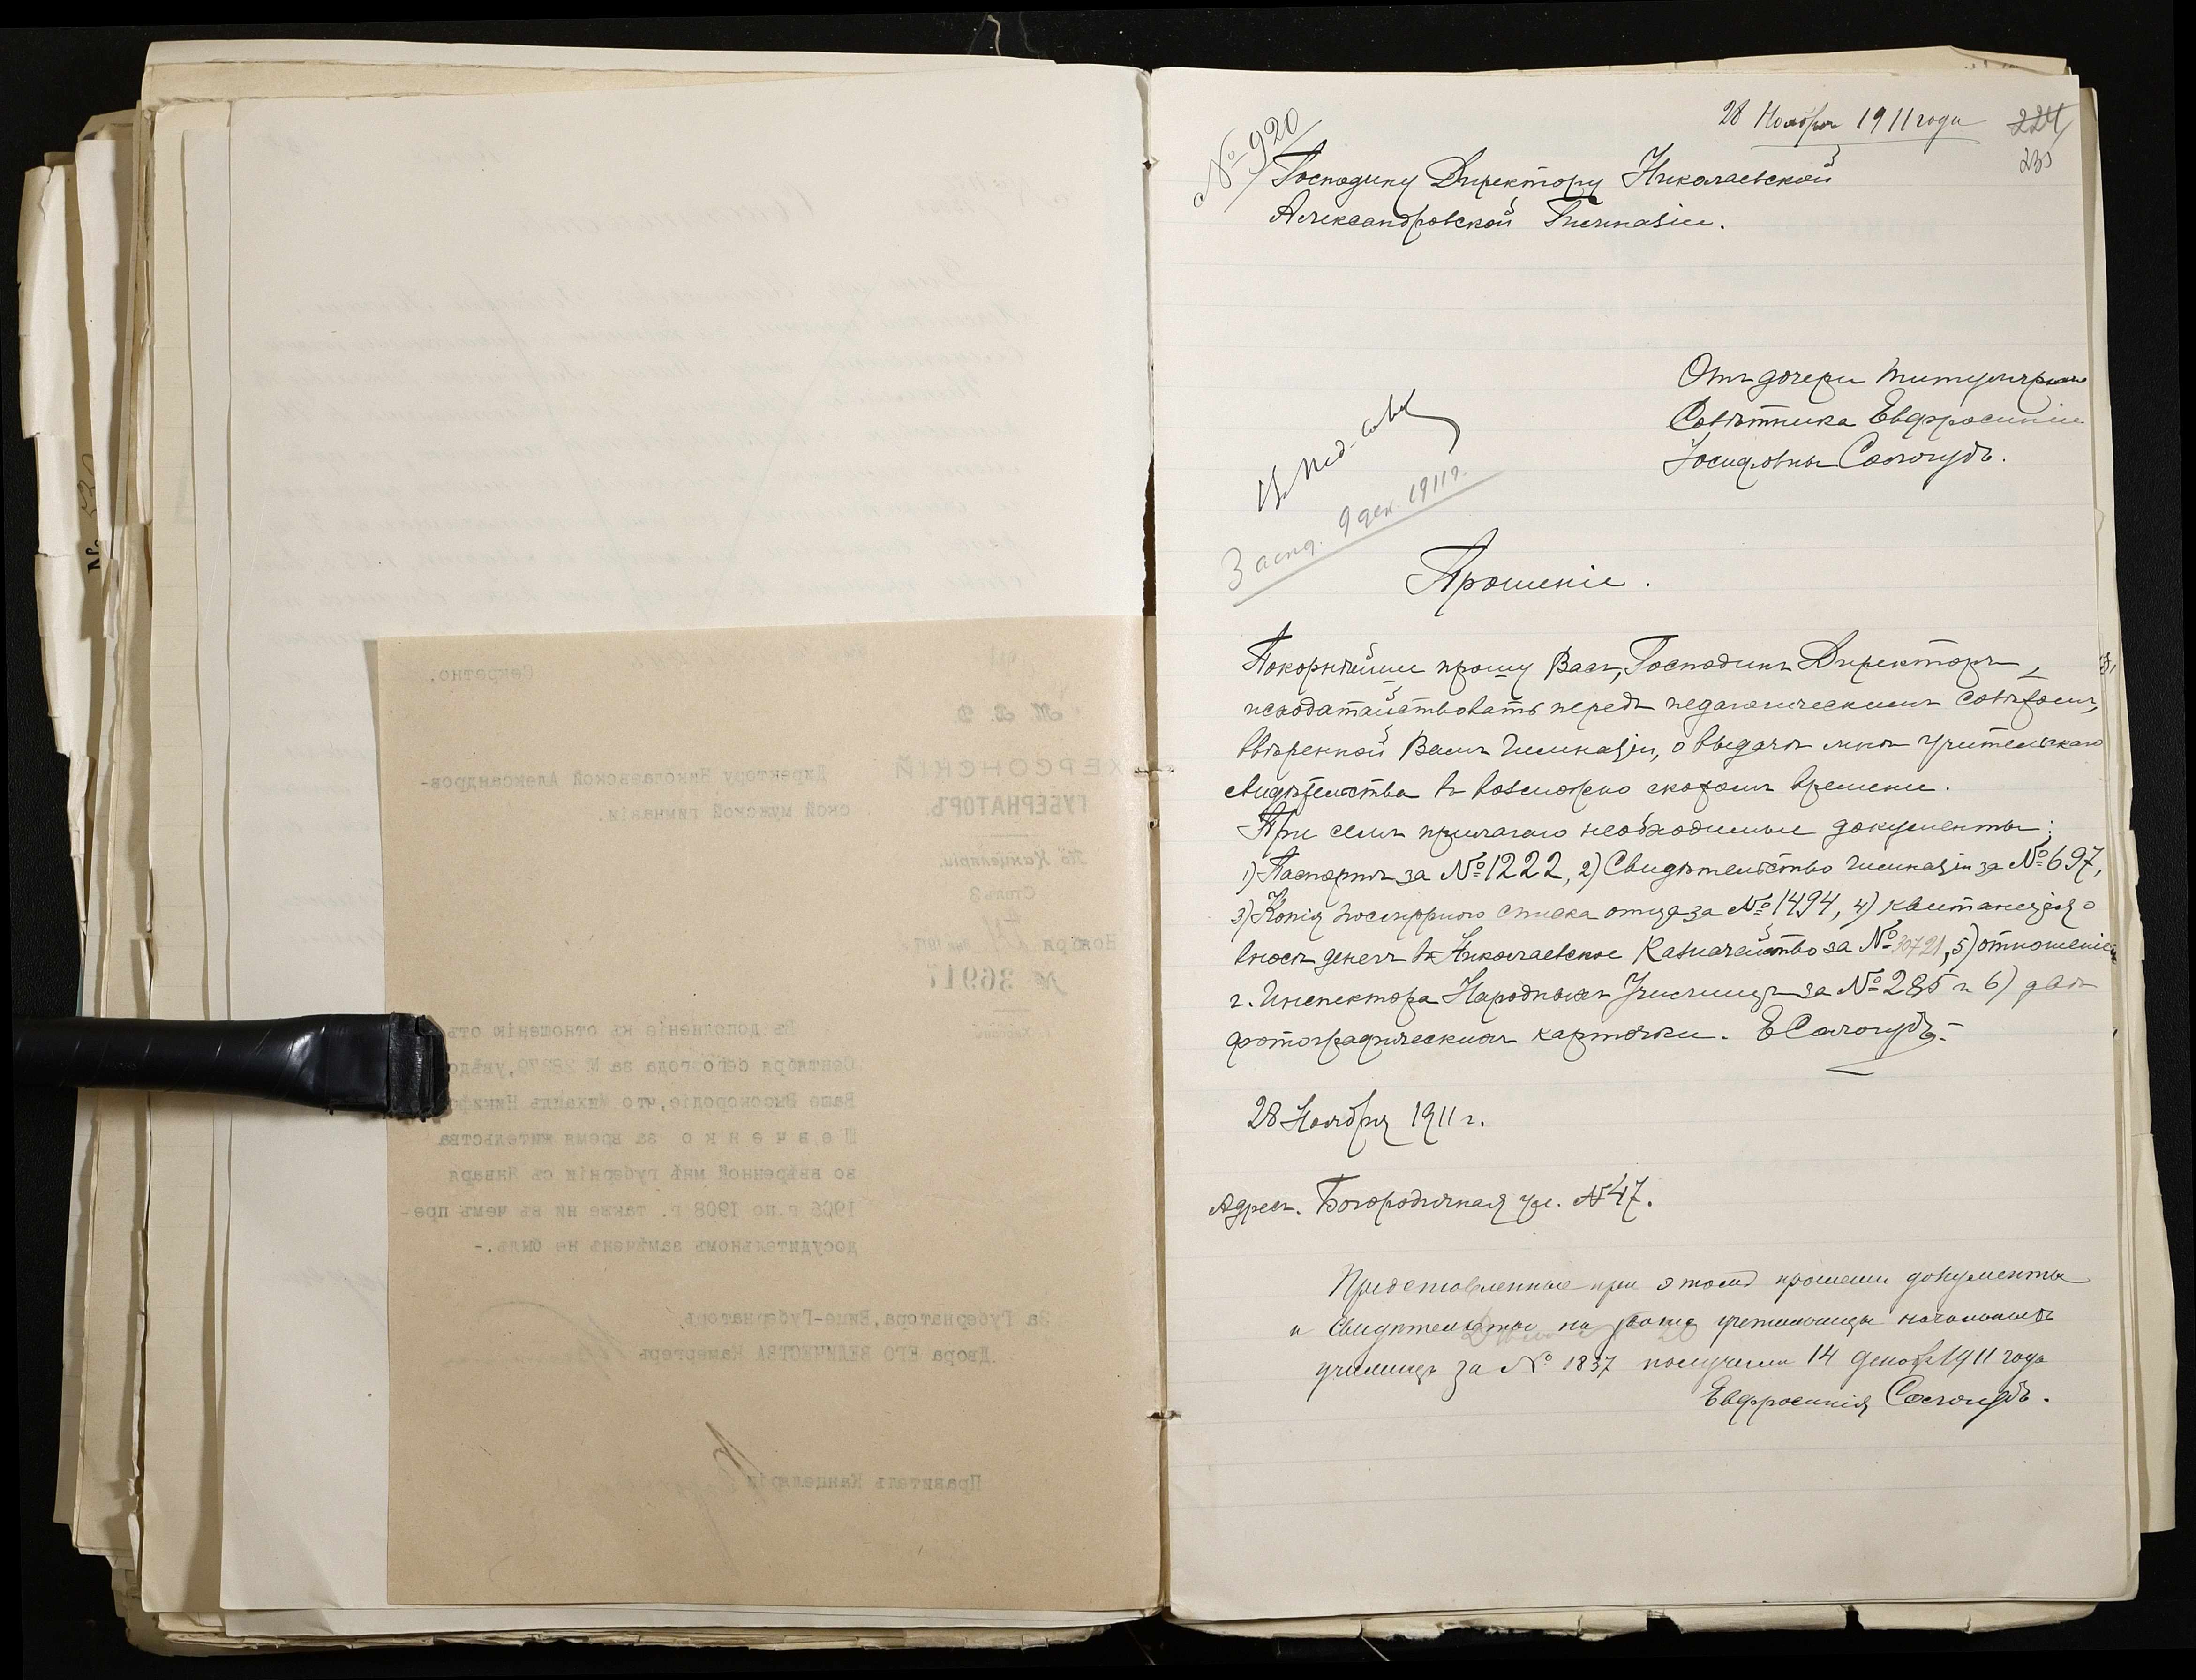 Секретно.
М. В. Д.
ХЕРСОНСКІЙ
ГУБЕРНАТОРЪ.
По Канцеляріи.
Столъ 3
Ноября 24 дня 1911 г.
№ 36917
г. Херсонъ
Директору Николаевской Александров-
ской мужской гимназіи.
Въ дополненіе къ отношенію отъ
Сентября сего года за № 28379, увѣдо
Ваше Высокородіе, что Михаилъ Никиф
Шевченко за время жительства
во ввѣренной мнѣ губерніи съ Января
1906 г. по 1908 г. также ни въ чемъ пре-
досудительномъ замѣченъ не былъ.-
За Губернатора, Вице-Губернаторъ,
Двора ЕГО ВЕЛИЧЕСТВА Камергеръ
Правитель Канцеляріи
28 Ноября 1911 года
224
№ 920
Господину Директору Николаевской
Александровской Гимназіи.
Отъ дочери Титулярнаго
Совѣтника Евфросиніи
Іосифовны Сологубъ.
Въ пед. совѣ
Засѣд. 9 дек. 1911 г.
Прошеніе.
Покорнѣйше прошу Васъ, Господинъ Директоръ,
исходатайствовать передъ педагогическимъ совѣтомъ,
ввѣренной Вамъ Гимназіи, о выдачѣ мнѣ учительскаго
свидѣтельства въ возможно скоромъ времени.
При семъ прилагаю необходимые документы:
1) Паспортъ за № 1222, 2) Свидѣтельство гимназіи за № 697,
3) Копія послужного списка отца за № 1494, 4) квитанція о
взносѣ денегъ въ Николаевское Казначейство за № 30721, 5) отношеніе
г. Инспектора Народныхъ Училищъ за № 285 и 6) двѣ
фотографическихъ карточки. Е Сологубъ.
28 Ноября 1911 г.
Адресъ. Богородичная ул. № 47.
Представленные при этомъ прошеніи документы
и свидѣтельство на званіе учительницы начальныхъ
училищъ за № 1837 получила 14 декабря 1911 года
Евфросинія Сологубъ.